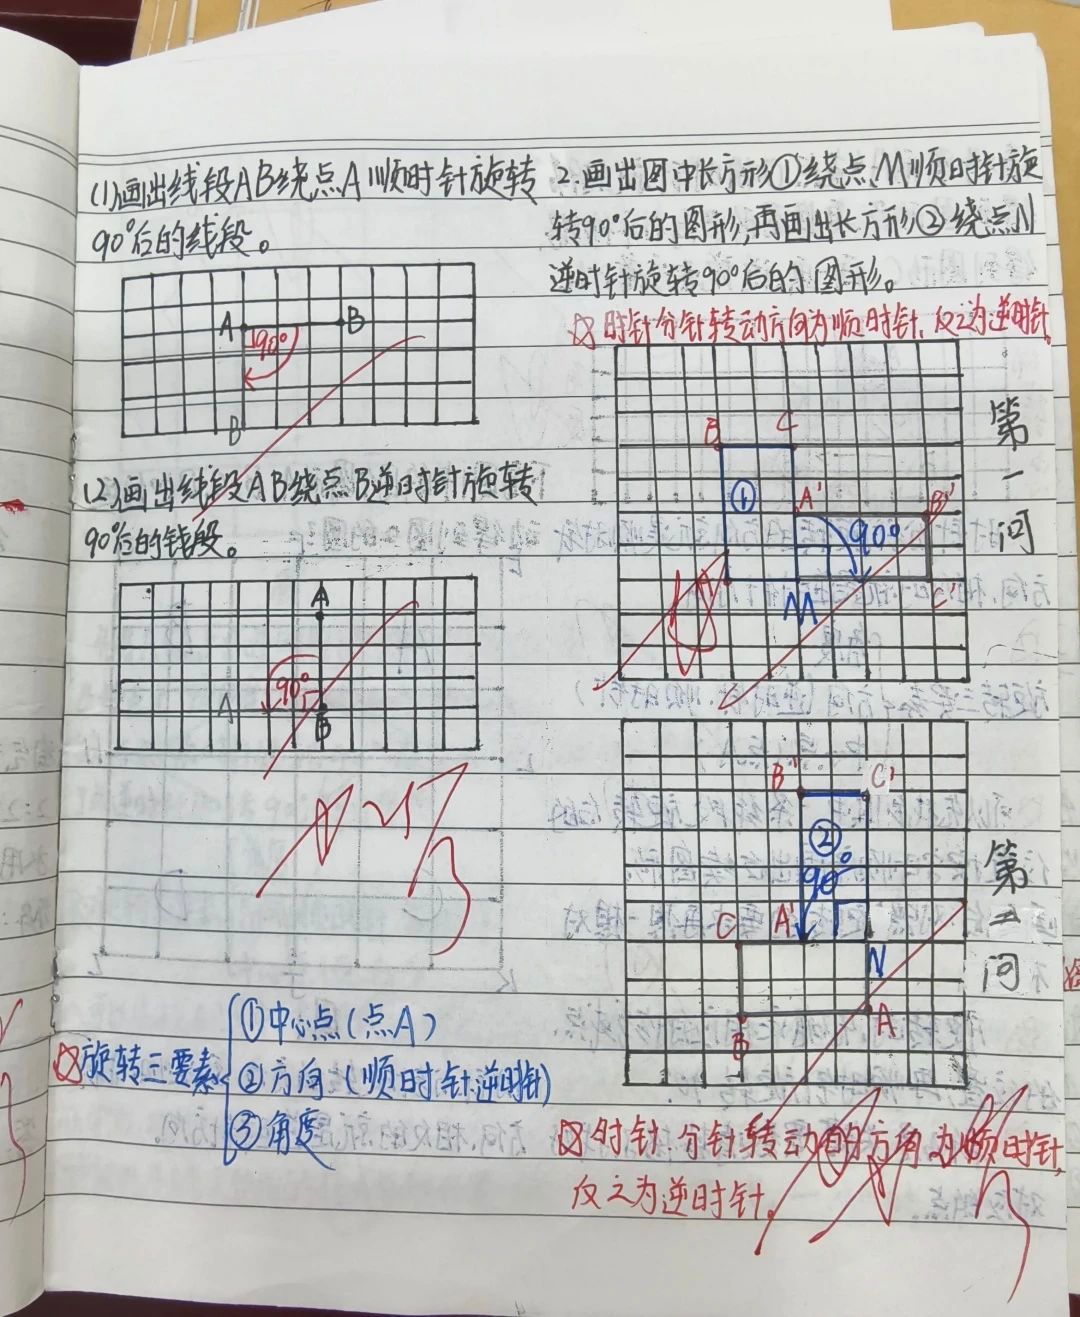 (1)画出线段AB绕点A顺时针旋转
90°后的线段。
A
B
90°
B
(2)画出线段AB绕点B逆时针旋转
90°后的线段。
A
90°
A
B
☆旋转三要素
①中心点(点A)
②方向(顺时针逆时针)
③角度
2.画出图中长方形①绕点M顺时针旋
转90°后的图形,再画出长方形②绕点N
逆时针旋转90°后的图形。
☆时针分针转动方向为顺时针,反之为逆时针。
第一问
B
C
①
A'
B'
90°
M
C'
第二问
B'
C'
②
90°
C
A'
N
A
B
☆时针分针转动的方向为顺时针,
反之为逆时针。